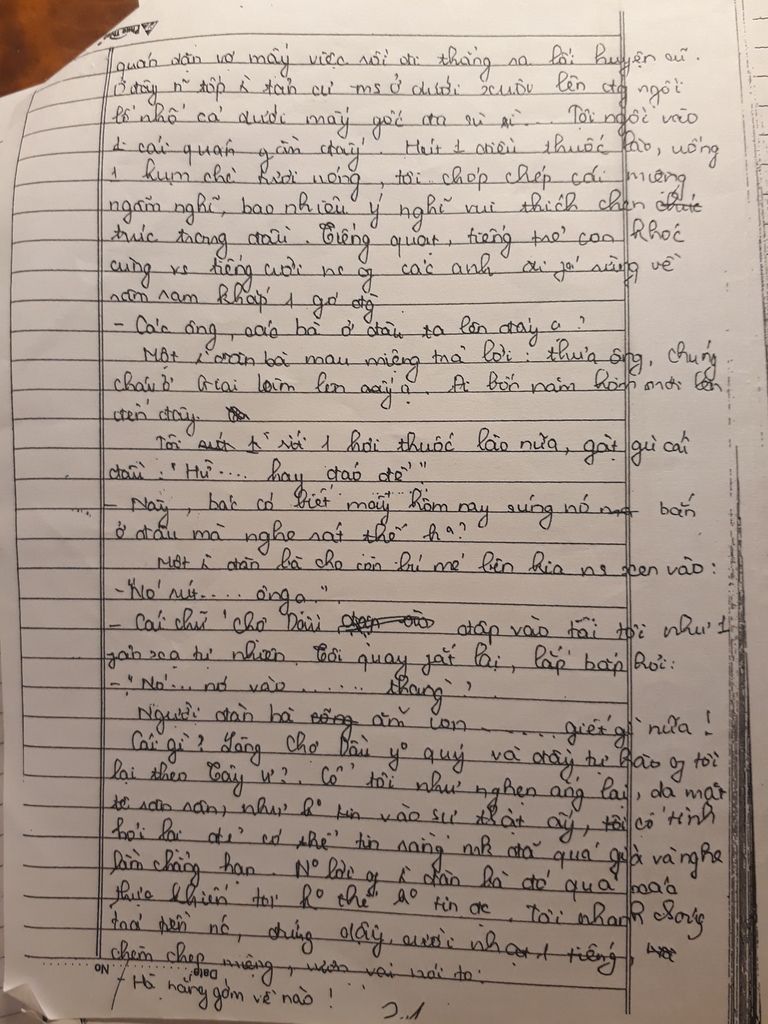 quan dân vơ mấy việc rồi đi thẳng ra lối huyện cũ.
Ở đây n~ tốp i tản cư ms ở dưới xuôi lên đg ngồi
lố nhố cả dưới mấy gốc đa sù sì... Tôi ngồi vào
1 cái quán gần đấy. Hút 1 điếu thuốc lào, uống
1 hụm chè tươi nóng, tôi chóp chép cái miệng
ngẫm nghĩ, bao nhiêu ý nghĩ vui thích chen
trúc trong đầu. Tiếng quạt, tiếng trẻ con khóc
cùng vs tiếng cười nc of các anh đi về
rôm ram khắp 1 góc đg
- Các ông, các bà ở đâu ta lên đấy ạ?
Một i đàn bà mau miệng trả lời: thưa ông, chúng
cháu ở Gia Lâm lên đấy ạ. Đi bốn năm hôm mới lên
đến đây.
Tôi rít 1 hơi thuốc lào nữa, gật gù cái
đầu: "Hừ.... hay đáo để"
- Này, bác có biết mấy hôm nay súng nó bắn
ở đâu mà nghe rát thế hả?
Một i đàn bà cho con bú mé bên kia ns xen vào:
- "Nó rút.... ông ạ".
- Cái chữ "chợ Dầu đập vào tai tôi như 1
tự nhiên. Tôi quay gắt lại, lắp bắp hỏi:
- "Nó... nó vào ....... thằng"?
Người đàn bà ẵm con ....... giết gì nữa!
Cái gì? Làng chợ Dầu yº quý và đầy tự hào of tôi
lại theo Tây ư?. Cổ tôi như nghẹn ắng lại, da mặt
tê rân rân, như kº tin vào sự thật ấy, tôi cố tình
hỏi lại để có thể tin rằng mk đã quá già và nghe
lầm chẳng hạn. Nº lời of i đàn bà đó quá
thực khiến tôi kº thể kº tin đc. Tôi nhanh chóng
trả tiền nc, đứng dậy, cười nhạt 1 tiếng,
chèm chẹp miệng, vươn vai nói to:
- Hà nắng gớm về nào!